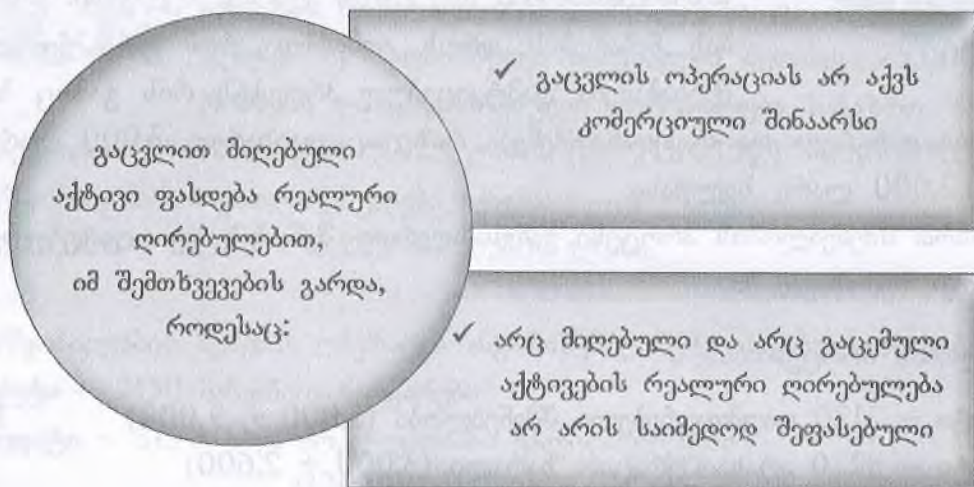 გაცვლით მიღებული
აქტივი ფასდება რეალური
ღირებულებით,
იმ შემთხვევების გარდა,
როდესაც:
✓ გაცვლის ოპერაციას არ აქვს
კომერციული შინაარსი
✓ არც მიღებული და არც გაცემული
აქტივების რეალური ღირებულება
არ არის საიმედოდ შეფასებული